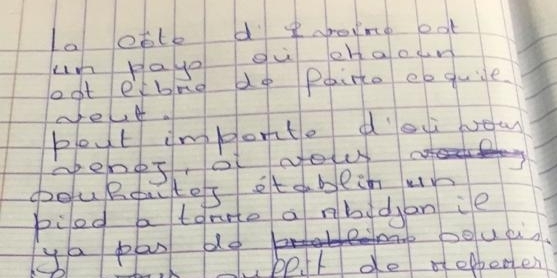 La côte d'Ivoire est
un pays où chacun
est libre de faire ce qu'il
veut.
peut importe d'où vous
venez, si vous
souhaitez établir un
pied a terre à Abidjan il
ya pas de soucis.
suffit de respecter